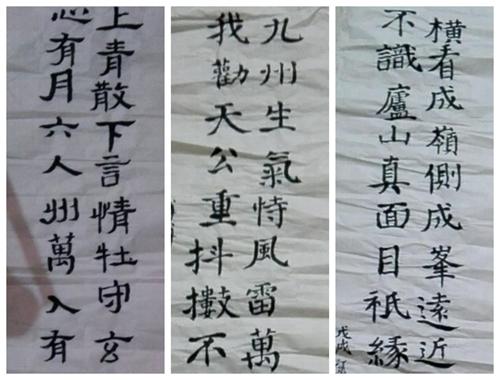 上青散下言情牡守玄
有月六人州萬入有
九州生氣恃風雷萬
我勸天公重抖擻不
橫看成嶺側成峯遠近
不識廬山真面目祇緣
戊戌